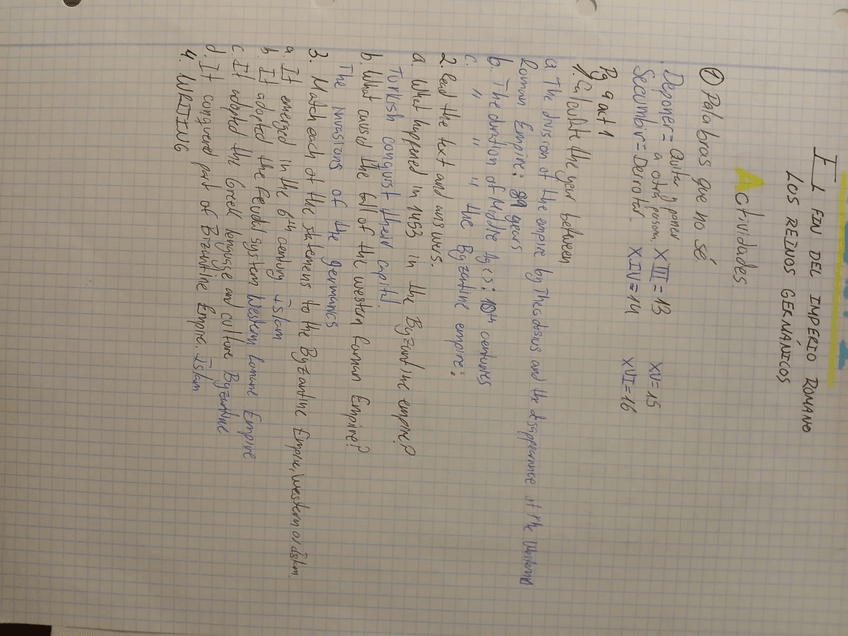 EL FIN DEL IMPERIO ROMANO
LOS REINOS GERMÁNICOS
Actividades
① Palabras que no sé
. Deponer = Quitar y poner XIII = 13 XV = 15
a otra persona
Secumbir = Derrotar. XIV = 14 XVI = 16
Pg 9 act 1
1. Calculate the year between
a. The division of the empire by Theodosius and the disappearance of the
Roman Empire: years
b. The duration of Middle Ages: 10th centuries
c. " " " the Byzantine empire:
2. Read the text and answers.
a. What happened in 1453 in the Byzantine empire?
Turkish conquest their capital.
b. What caused the fall of the western Roman Empire?
The invasions of the germanics
3. Match each of the statemens to the Byzantine Empire, western or Islam.
a. It emerged in the 6th century Islam
b. It adopted the feudal system Western Romane Empire
c. It adopted the Greek language and culture Byzantine
d. It conquered part of Byzantine Empire. Islam
4. WRITING